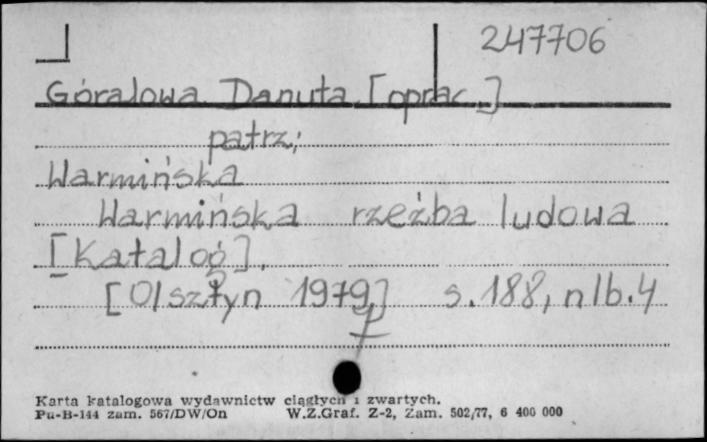 247706
Góralowa Danuta [oprac.]
patrz:
Warmińska
Warmińska rzeźba ludowa
[Katalog].
[Olsztyn 1979] s. 188, nlb. 4
Karta katalogowa wydawnictw ciągłych i zwartych.
Pu-B-144 zam. 567/DW/On W.Z.Graf. Z-2, Zam. 502/77, 6 400 000